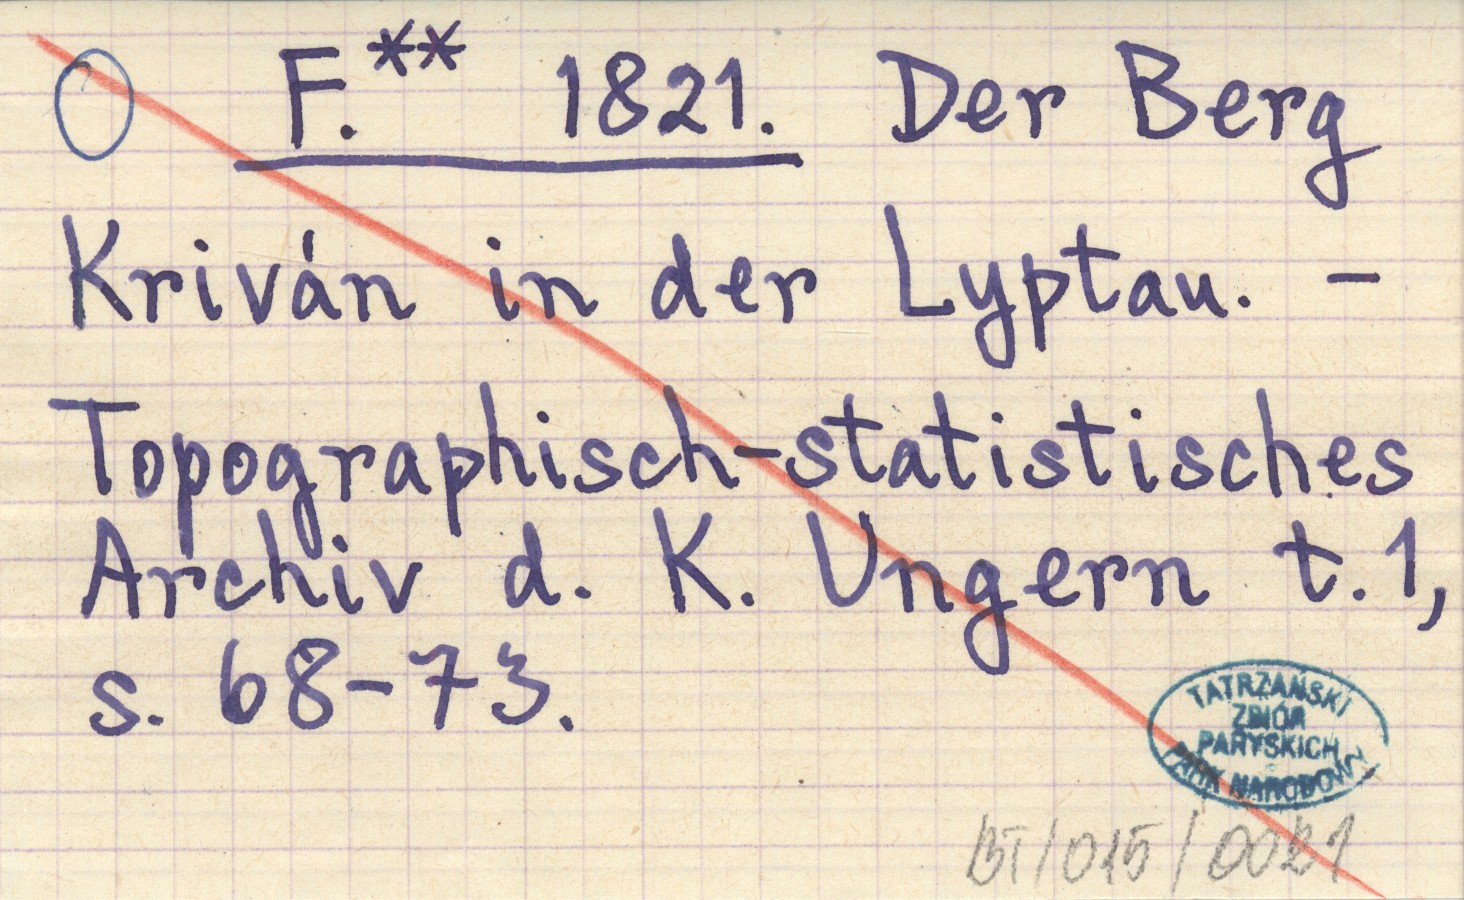 F.** 1821. Der Berg
Kriván in der Lyptau. -
Topographisch-statistisches
Archiv d. K. Ungern t.1,
s. 68-73.
TATRZAŃSKI
ZBIÓR
PARYSKICH
PARK NARODOWY
BT/015/0021